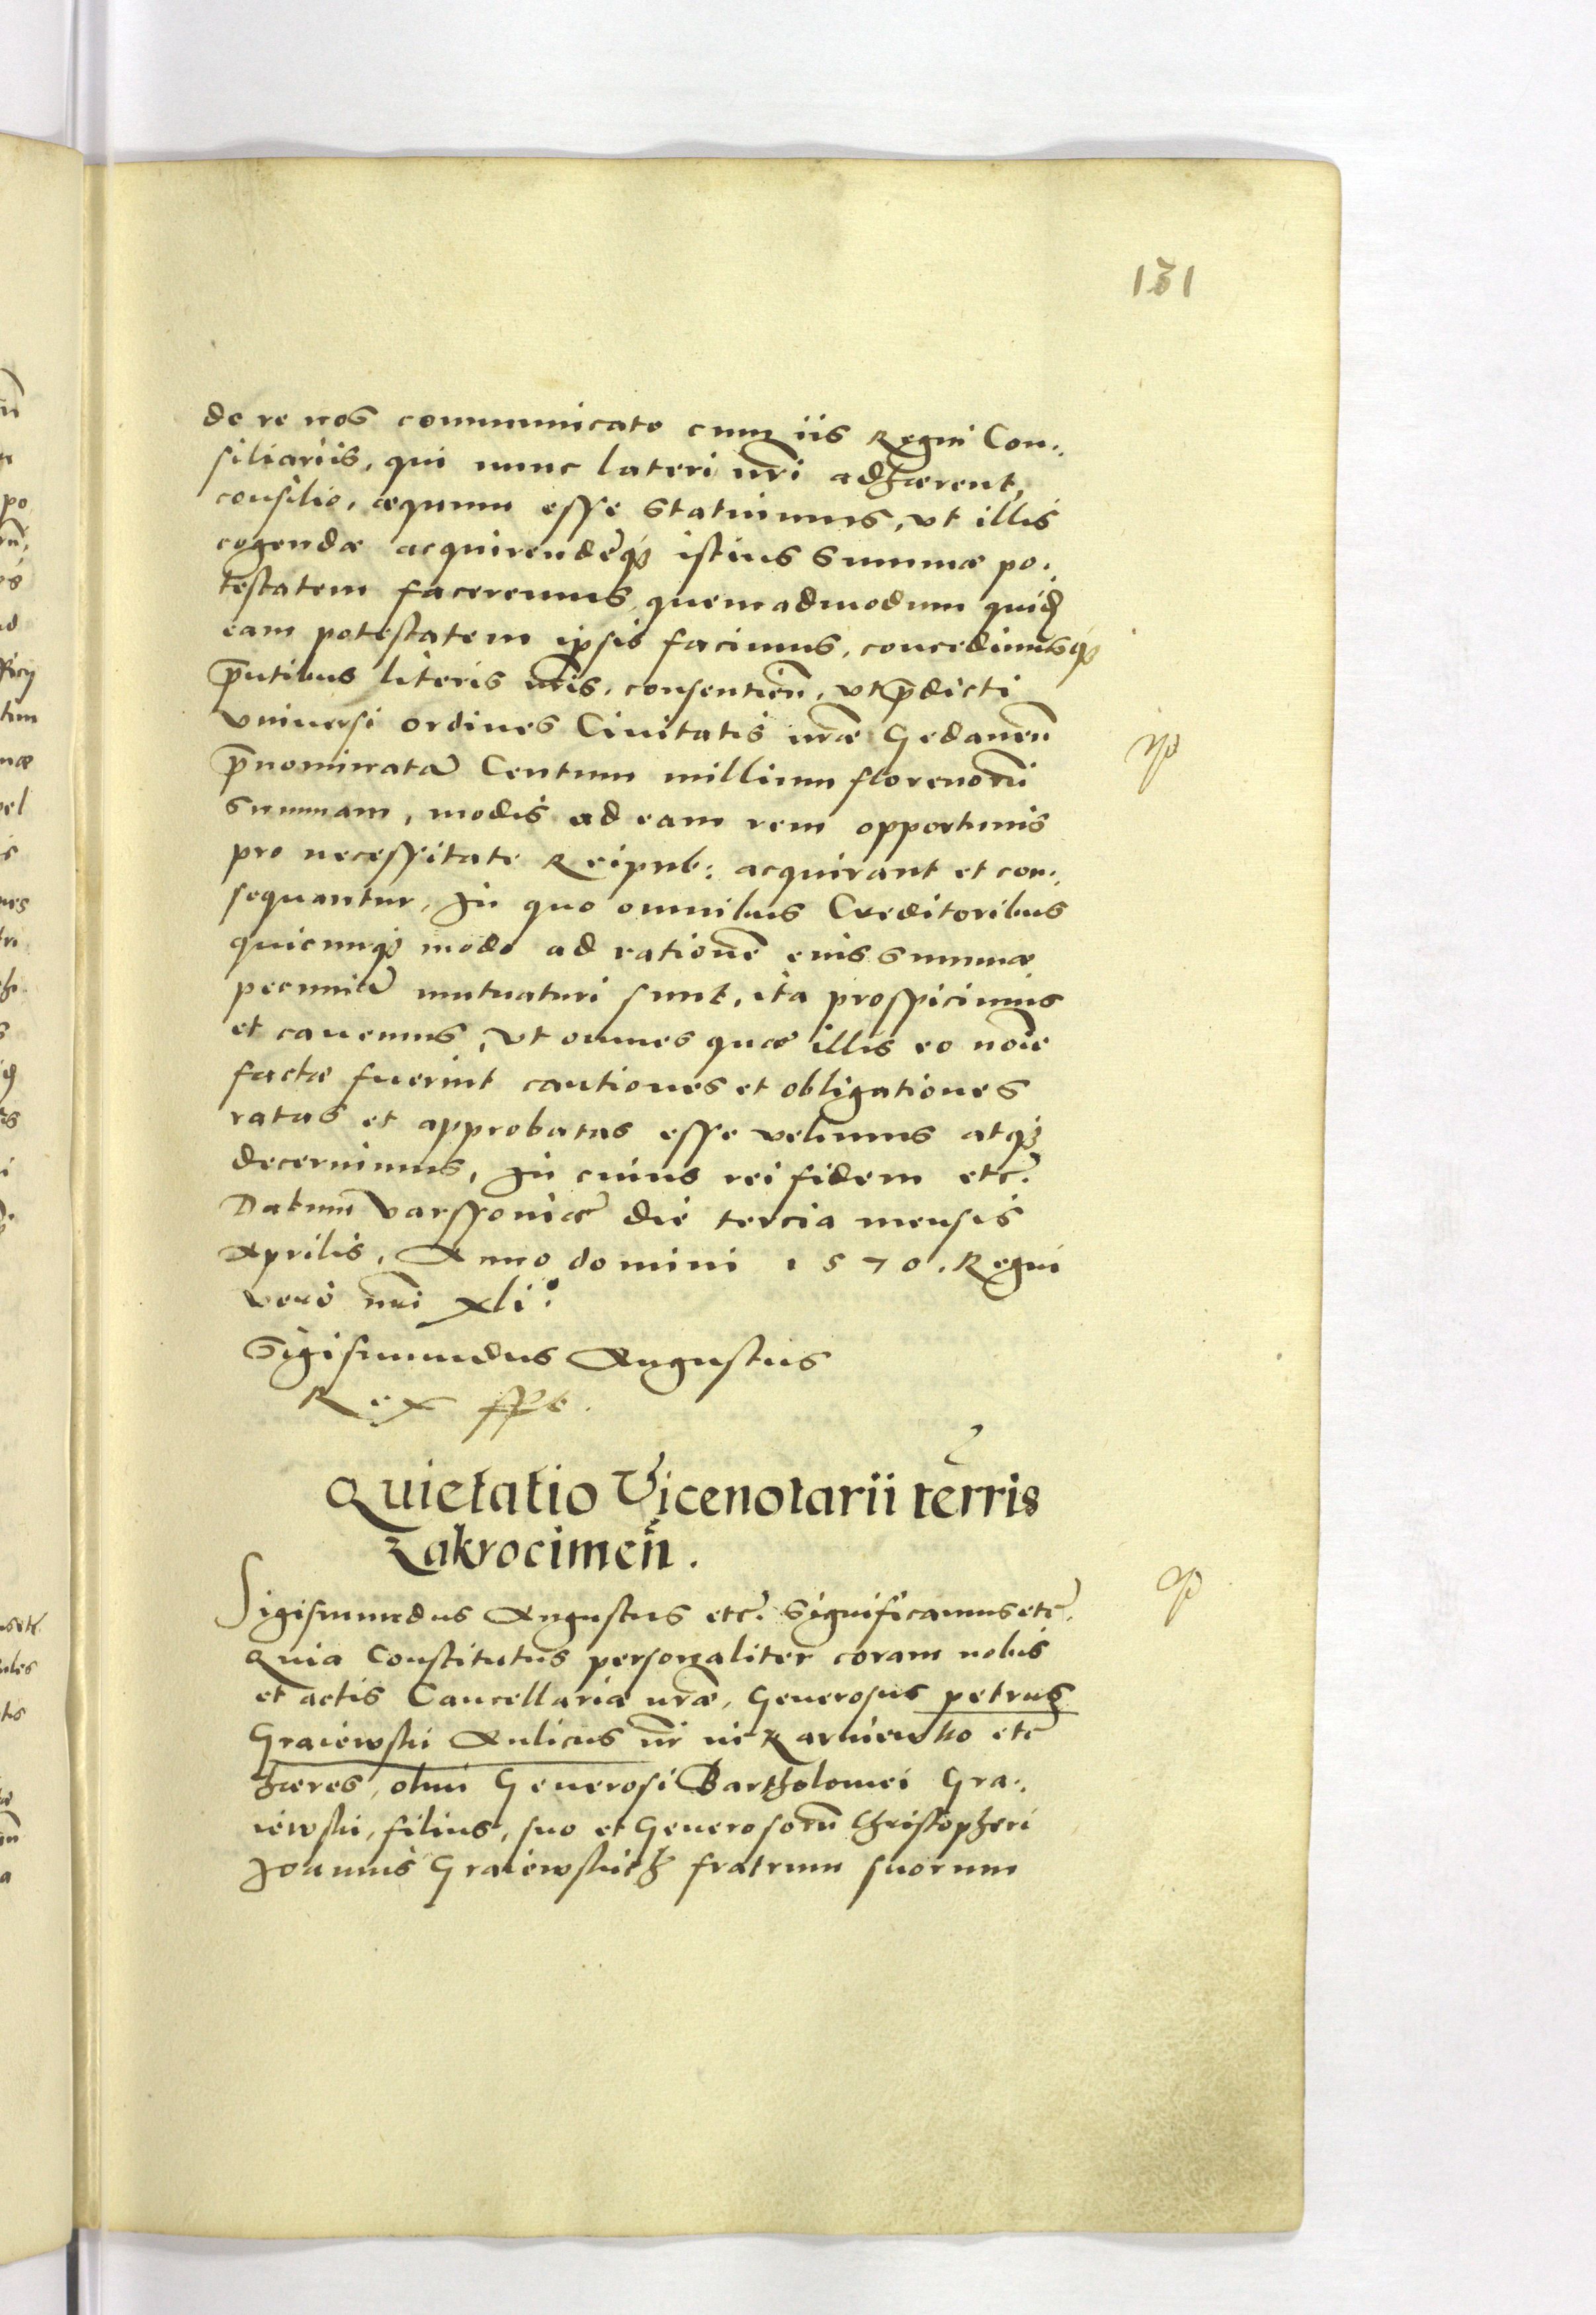 131
de re nos communicato cum iis Regni Con-
siliariis, qui nunc lateri nr̄i adhærent,
consilio, æquum esse statuimus, vt illis
cogendæ acquirendæq́ istius summæ po-
testatem faceremus, quemadmodum quid̃
eam potestatem ipsis facimus, concedimusq́
p̄ntibus literis nr̄is, consentieñ, vt p̄dicti
vniuersi ordines Ciuitatis nr̄æ Gedaneñ
p̄nominatã Centum millium florenorũ
summam, modis ad eam rem opportunis
pro necessitate Reipub: acquirant et con-
sequantur, In quo omnibus Creditoribus
quicunq́ modo ad rationẽ eius summæ
pecuniã mutuaturi sunt, ita prospicimus
et cauemus, vt omnes quæ illis eo noĩe
factæ fuerint cautiones et obligationes
ratas et approbatas esse velimus atq́
decernimus, In cuius rei fidem etc̃.
Datum Varssouiæ die tercia mensis
Aprilis, Anno domini 1570. Regni
vero nr̄i xli.
Sigismundus Augustus
Rex sspt.
Quietatio Vicenotarii terris
Zakrocimeñ.
Sigismundus Augustus etc̃. Significamus etc̃.
Quia Constitutus personaliter coram nobis
et actis Cancellariæ nr̄æ, Generosus Petrus
Graiewski Aulicus nr̄ in Karniewko etc̃
hæres, olim Generosi Bartholomei Gra-
iewski, filius, suo et Generosorũ Christopheri
Joannis Graiewskich fratrum suorum